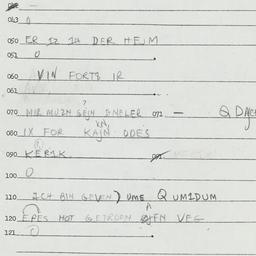 043 0
050 ER IZ IN DER HEJM
051 0
060 VIN FORTS IR
061
070 MIR MUZN GEJN SNELER 071 —
080 IX FOR KAJN ODES
090 KERIK. 091
100 0
110 ICH BIN GEVEN) UME Q UMIDUM
120 EPES HOT GETROFN AFN VEG
121